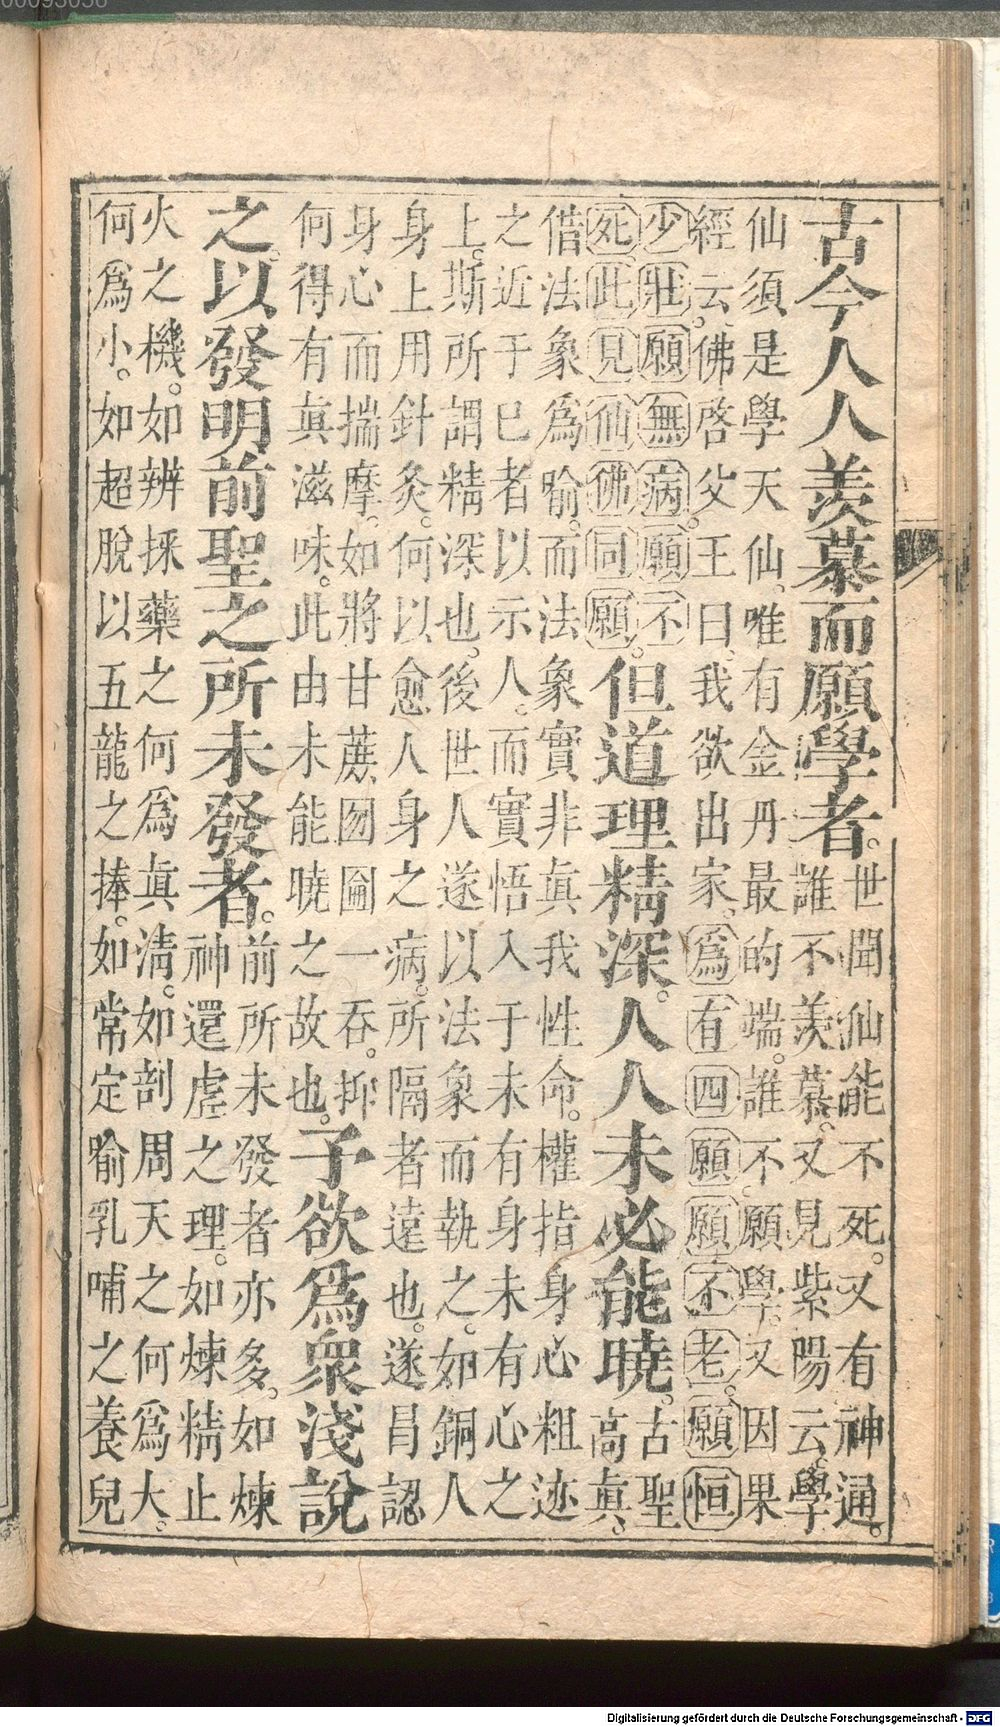 古今人人羨慕而願學者。
世聞仙能不死。又有神通。
誰不羨慕。又見紫陽云。學
仙須是學天仙。唯有金丹最的端。誰不願學。又因果
經云。佛啓父王曰。我欲出家。爲有四願願不老。願恒
少壯願無病。願不
死此見仙佛同願。
但道理精深。人人未必能曉。
古聖
高眞。
借法象爲喻。而法象實非眞我性命。權指身心粗迹
之近于已者以示人。而實悟入于未有身未有心之
上。斯所謂精深也。後世人遂以法象而執之。如銅人
身上用針灸。何以愈人身之病。所隔者遠也。遂昌認
身心而揣摩。如將甘蔗囫圇一吞。抑
何得有眞滋味。此由未能曉之故也。
予欲爲衆淺說
之。以發明前聖之所未發者。
前所未發者亦多。如煉
神還虛之理。如煉精止
火之機。如辨採藥之何爲眞清。如剖周天之何爲大。
何爲小。如超脫以五龍之捧。如常定喻乳哺之養兒
Digitalisierung gefördert durch die Deutsche Forschungsgemeinschaft - DFG